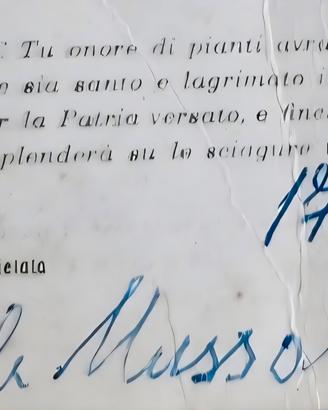 Tu onore di pianti avra
sia santo e lagrimato
la Patria versato, e finc
plenderà su le sciagure
17
ielata
Musso